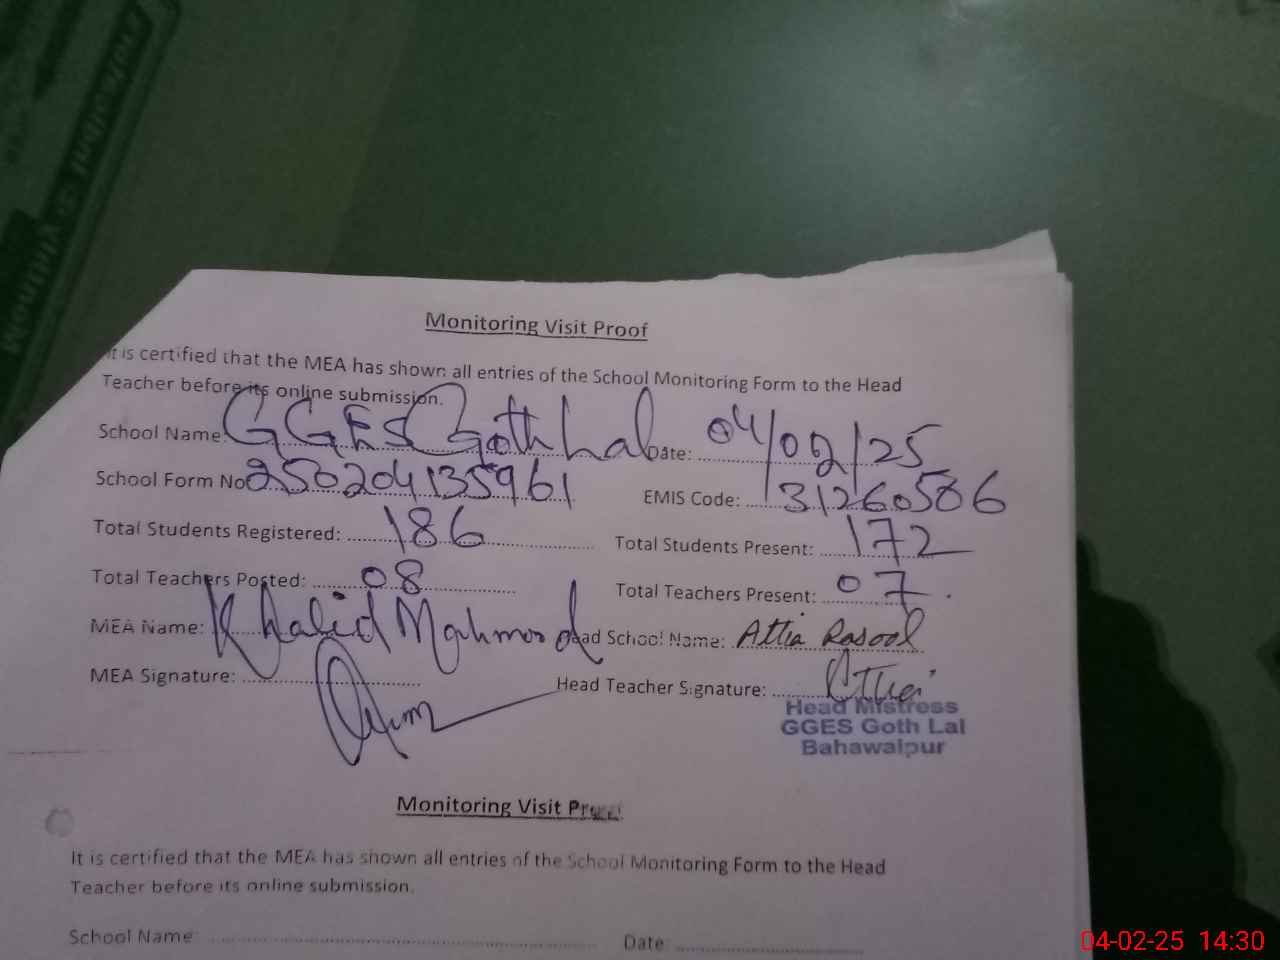 Monitoring Visit Proof
It is certified that the MEA has shown all entries of the School Monitoring Form to the Head
Teacher before its online submission.
School Name: GGES Goth Lal Date: 04/02/25
School Form No 250204135961 EMIS Code: 31260586
Total Students Registered: 186 Total Students Present: 172
Total Teachers Posted: 08 Total Teachers Present: 07.
MEA Name: Khalid Mahmood Head School Name: Attia Rasool
MEA Signature: Head Teacher Signature: Attia
Head Mistress
GGES Goth Lal
Bahawalpur
Monitoring Visit Proof
It is certified that the MEA has shown all entries of the School Monitoring Form to the Head
Teacher before its online submission.
School Name: Date:
04-02-25 14:30